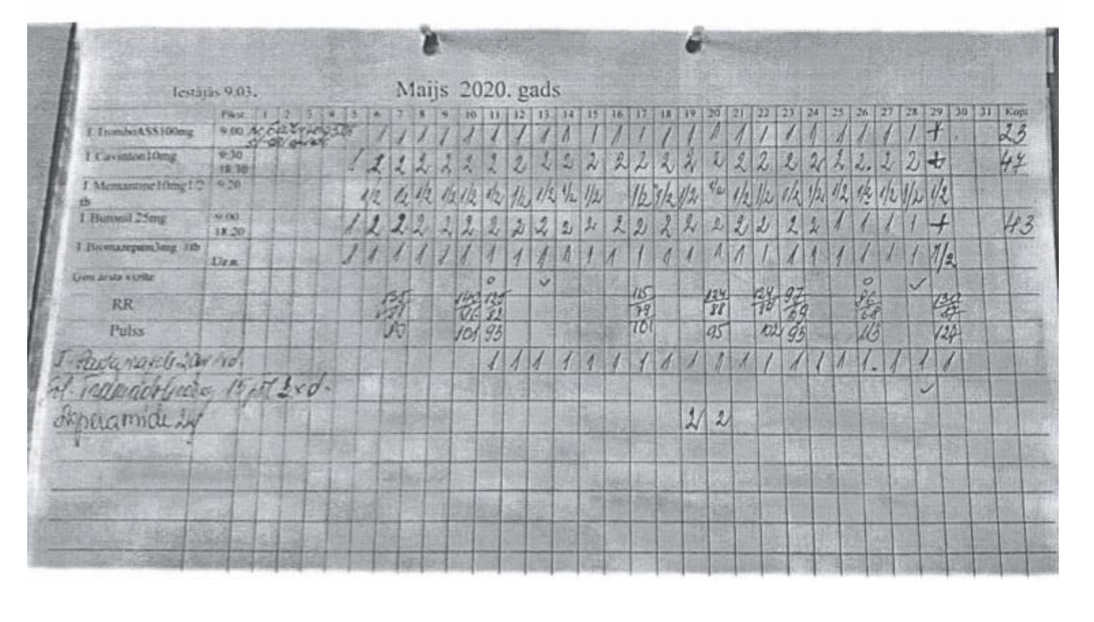 Iestājās 9.03. Maijs 2020. gads
Plkst 1 2 3 4 5 6 7 8 9 10 11 12 13 14 15 16 17 18 19 20 21 22 23 24 25 26 27 28 29 30 31 Kopā
T.TromboASS100mg 9.00 1 1 1 1 1 1 1 1 1 1 1 1 1 1 1 1 1 1 1 1 1 1 1 + 23
T.Cavinton10mg 9:30 1 2 2 2 2 2 2 2 2 2 2 2 2 2 2 2 2 2 2 2 2 2 2 2 + 47
18:30
T.Memantine10mg1/2 9:20 1/2 1/2 1/2 1/2 1/2 1/2 1/2 1/2 1/2 1/2 1/2 1/2 1/2 1/2 1/2 1/2 1/2 1/2 1/2 1/2 1/2 1/2 1/2
tb
T.Buronil 25mg 9.00 1 2 2 2 2 2 2 2 2 2 2 2 2 2 2 2 2 2 2 2 1 1 1 1 + 43
18.20
T.Bromazepam3mg 1tb 1 1 1 1 1 1 1 1 1 1 1 1 1 1 1 1 1 1 1 1 1 1 1 1 1/2
Ģim.ārsta vizīte
RR 135 142 125 115 124 124 97 86 130
82 79 88 80 69 68 87
Pulss 80 101 93 101 95 102 93 113 127
T. 1 1 1 1 1 1 1 1 1 1 1 1 1 1 1 1. 1 1 1
Sol. 15 d.
Loperamide 2 2